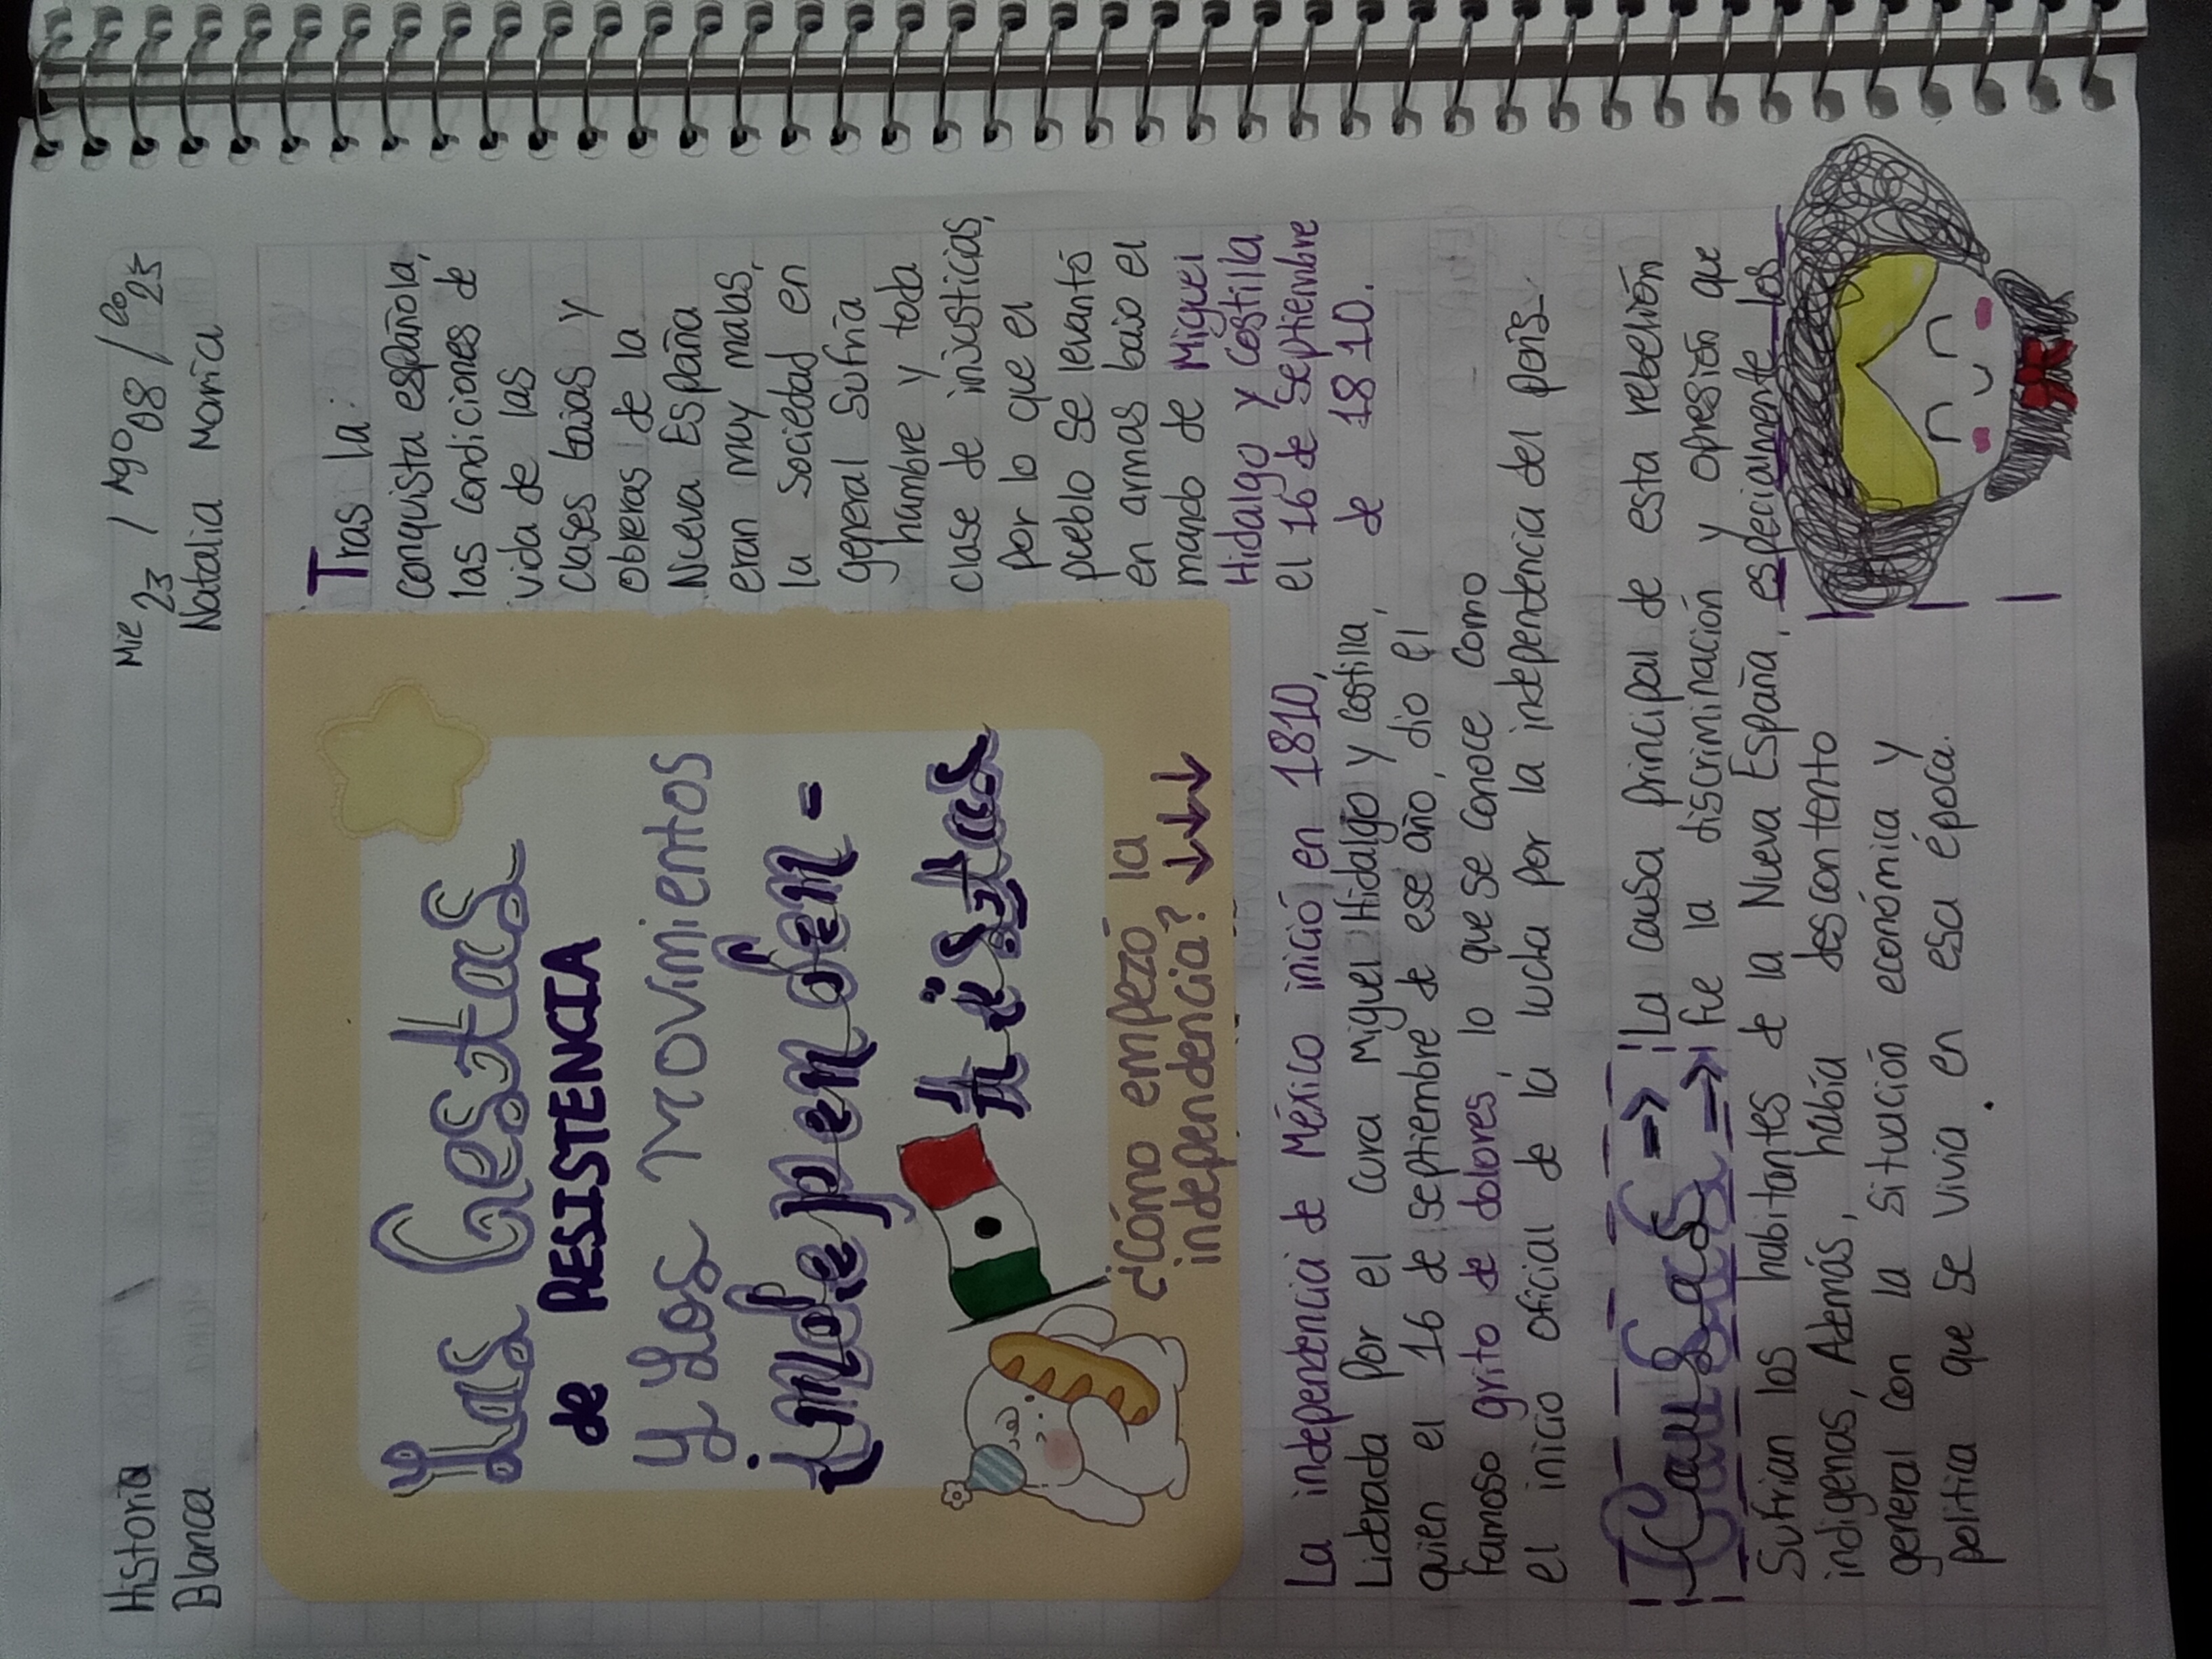 Historia
Blanca
Mie 23 / Ago 08 / 2023
Natalia María
Las Gestas
de RESISTENCIA
y Los movimientos
independen=
tistas
¿Cómo empezó la
independencia? ↓↓↓
Tras la
conquista española,
las condiciones de
vida de las
clases bajas y
obreras de la
Nueva España
eran muy malas,
la sociedad en
general sufría
hambre y toda
clase de injusticias,
por lo que el
pueblo se levantó
en armas bajo el
mando de Miguel
Hidalgo y Costilla
el 16 de septiembre
de 1810.
La independencia de México inició en 1810,
Liderada por el cura Miguel Hidalgo y Costilla,
quien el 16 de septiembre de ese año, dio el
famoso grito de dolores, lo que se conoce como
el inicio oficial de la lucha por la independencia del país
Causas => La causa principal de esta rebelión
=> fue la discriminación y opresión que
Sufrían los habitantes de la Nueva España, especialmente los
indígenas, Además, había descontento
general con la situación económica y
política que se vivía en esa época.